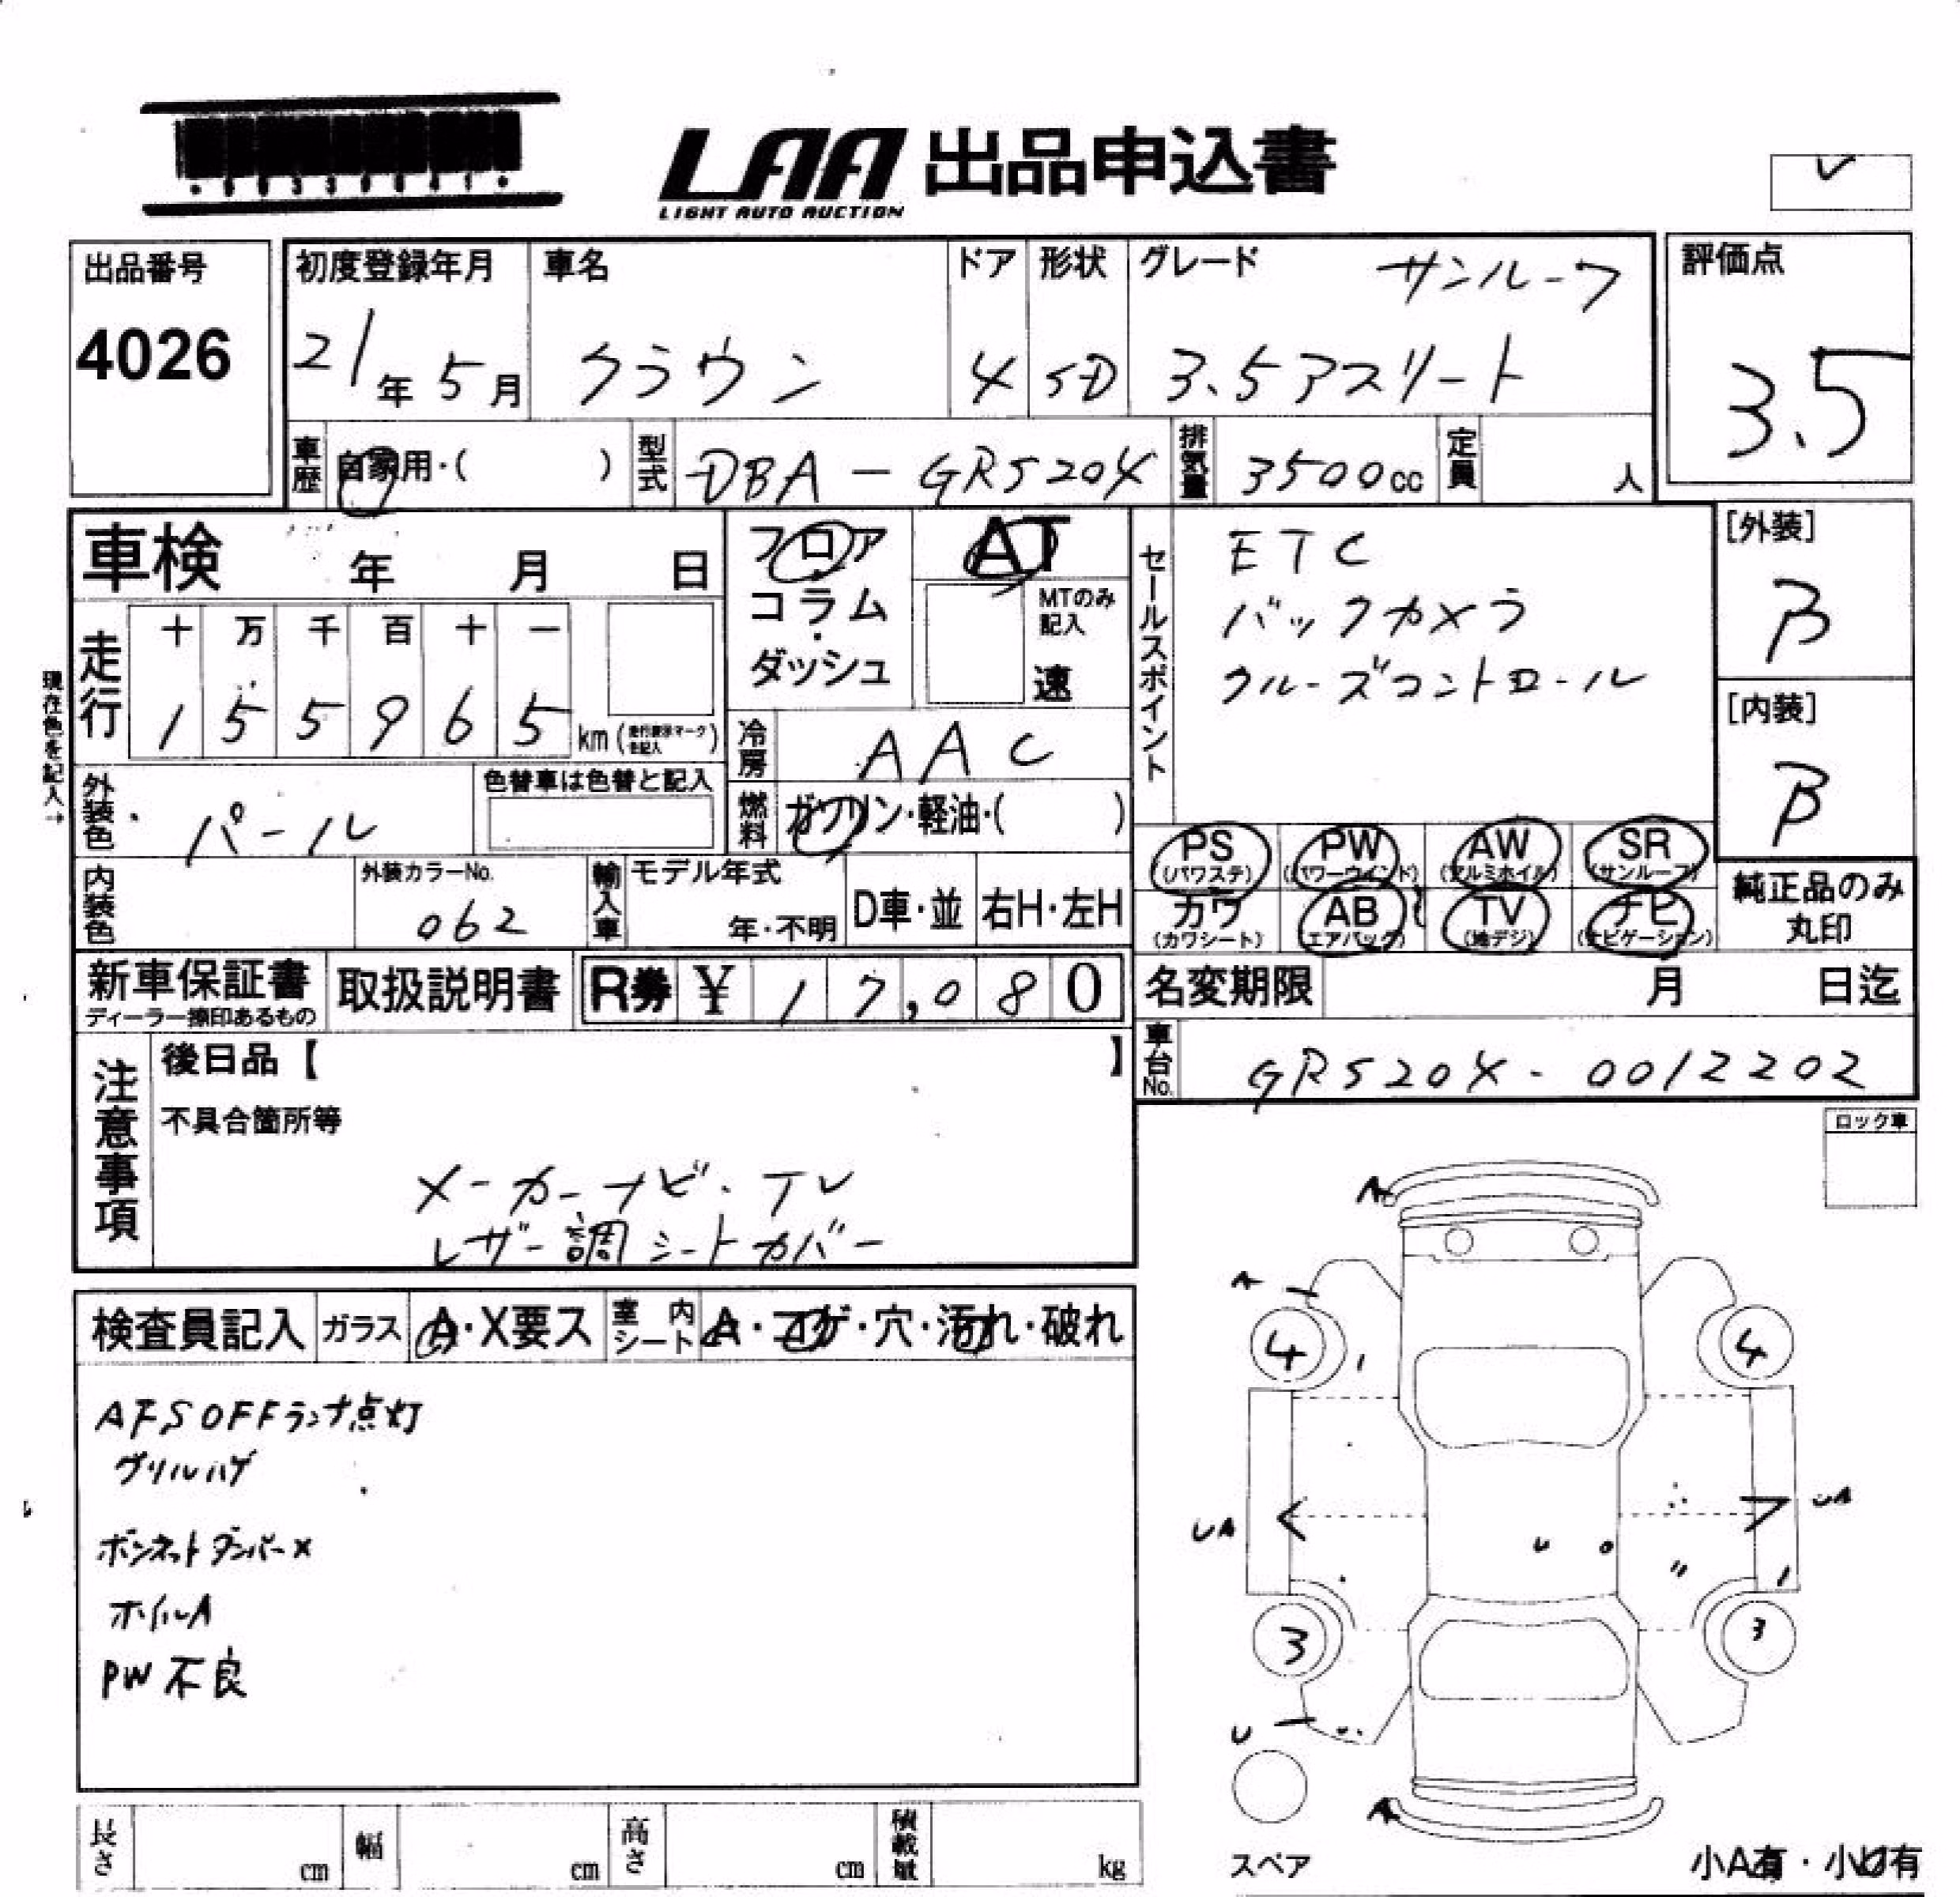 LAA 出品申込書
LIGHT AUTO AUCTION
出品番号
4026
初度登録年月
21年 5月
車名
クラウン
ドア
4
形状
SD
グレード
サンルーフ
3.5アスリート
評価点
3.5
車歴 自家用・( )
型式 DBA-GRS204
排気量 3500cc
定員 人
車検 年 月 日
フロア
コラム
・
ダッシュ
AT
MTのみ
記入
速
セールスポイント
ETC
バックカメラ
クルーズコントロール
[外装]
B
[内装]
B
現在色を記入→
走行
十 万 千 百 十 一
1 5 5 9 6 5 km
冷房 AAC
外装色 パール
色替車は色替と記入
燃料 ガソリン・軽油・( )
内装色
外装カラーNo.
062
輸入車
モデル年式
年・不明
D車・並
右H・左H
PS (パワステ)
PW (パワーウインド)
AW (アルミホイル)
SR (サンルーフ)
カワ (カワシート)
AB (エアバッグ)
TV (地デジ)
ナビ (ナビゲーション)
純正品のみ
丸印
新車保証書
ディーラー捺印あるもの
取扱説明書
R券 ¥ 17,080
名変期限 月 日迄
車台No. GRS204-0012202
注意事項
後日品【 】
不具合箇所等
メーカーナビ・TV
レザー調シートカバー
ロック車
検査員記入
ガラス A・X要ス
室内シート A・コゲ・穴・汚れ・破れ
AFS OFFランプ点灯
グリルハゲ
ボンネットダンパーX
ホイルA
PW不良
A
A
4
4
UA
UA
U
3
3
U
A
スペア
小A有・小U有
長さ cm
幅 cm
高さ cm
積載量 kg